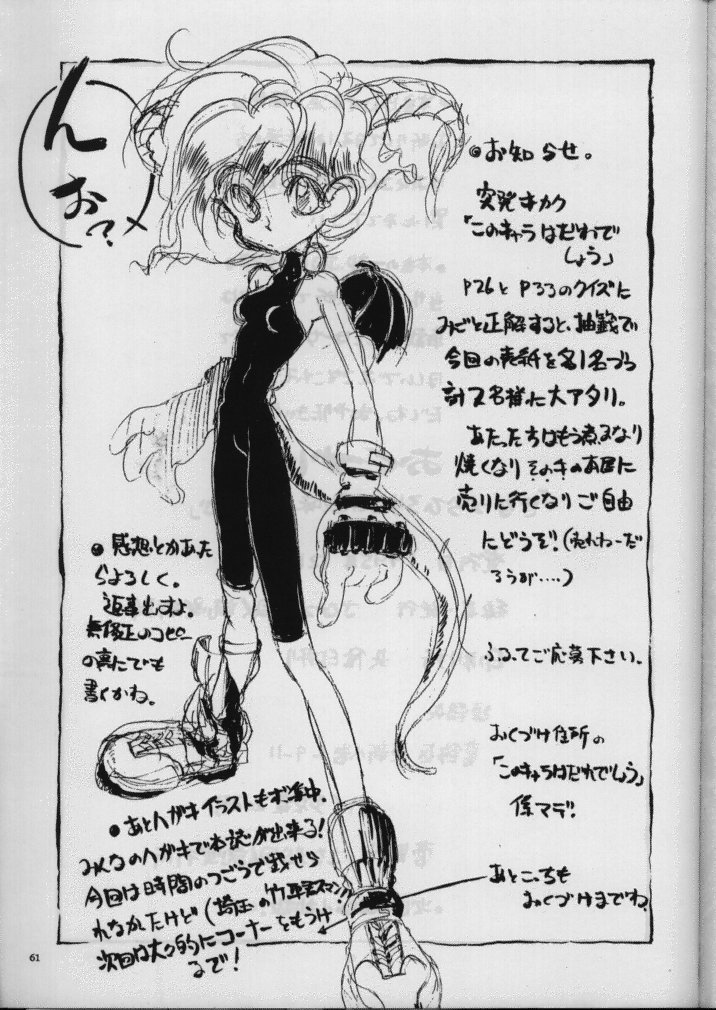 んお?
●お知らせ。
突発キカク
「このキャラはだれで
しょう」
P26とP33のクイズに
みごと正解すると、抽籤で
今回の表紙を各1名づつ
計2名様に大アタリ。
あたった方はもう煮るなり
焼くなりその手のお店に
売りに行くなりご自由
にどうぞ!(売れねーだ
ろうが....)
ふるってご応募下さい。
おくづけ住所の
「このキャラはだれでしょう」
係マデ!
あとこっちも
おくづけまでね。
●感想とかあた
らよろしく。
返事出すよ。
無修正のコピー
の裏にでも
書くかね。
●あとハガキイラストもボ集中.
みんなのハガキで本誌が出来る!
今回は時間のつごうで載せら
れなかたけど(埼玉の スマン!!)
次回は大々的にコーナーをもうけ
るで!
61